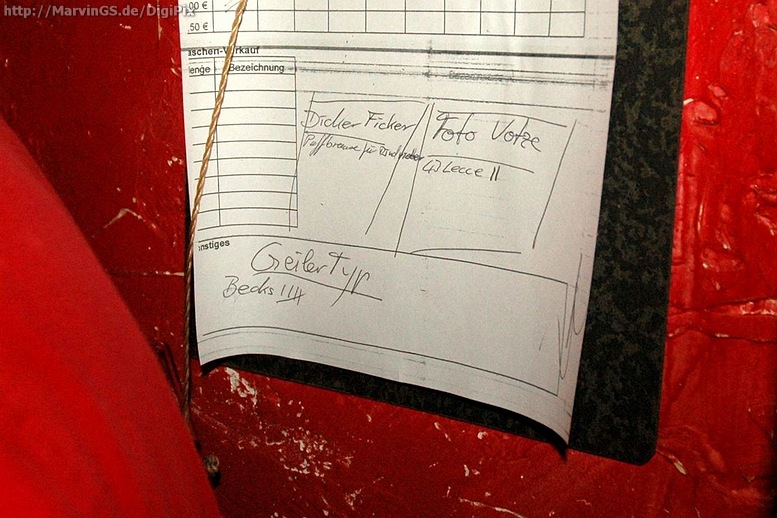 http://MarvinGS.de/DigiPix
00 €
.50 €
aschen-Verkauf
enge Bezeichnung
Bezeichnung
Dicker Ficker
Foto Votze
für
Lecce II
onstiges
Geiler Typ
Becks IIII